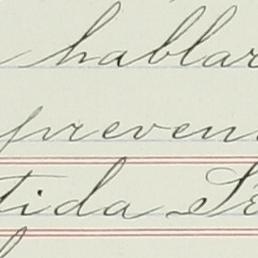 hablar
preven
tida Se